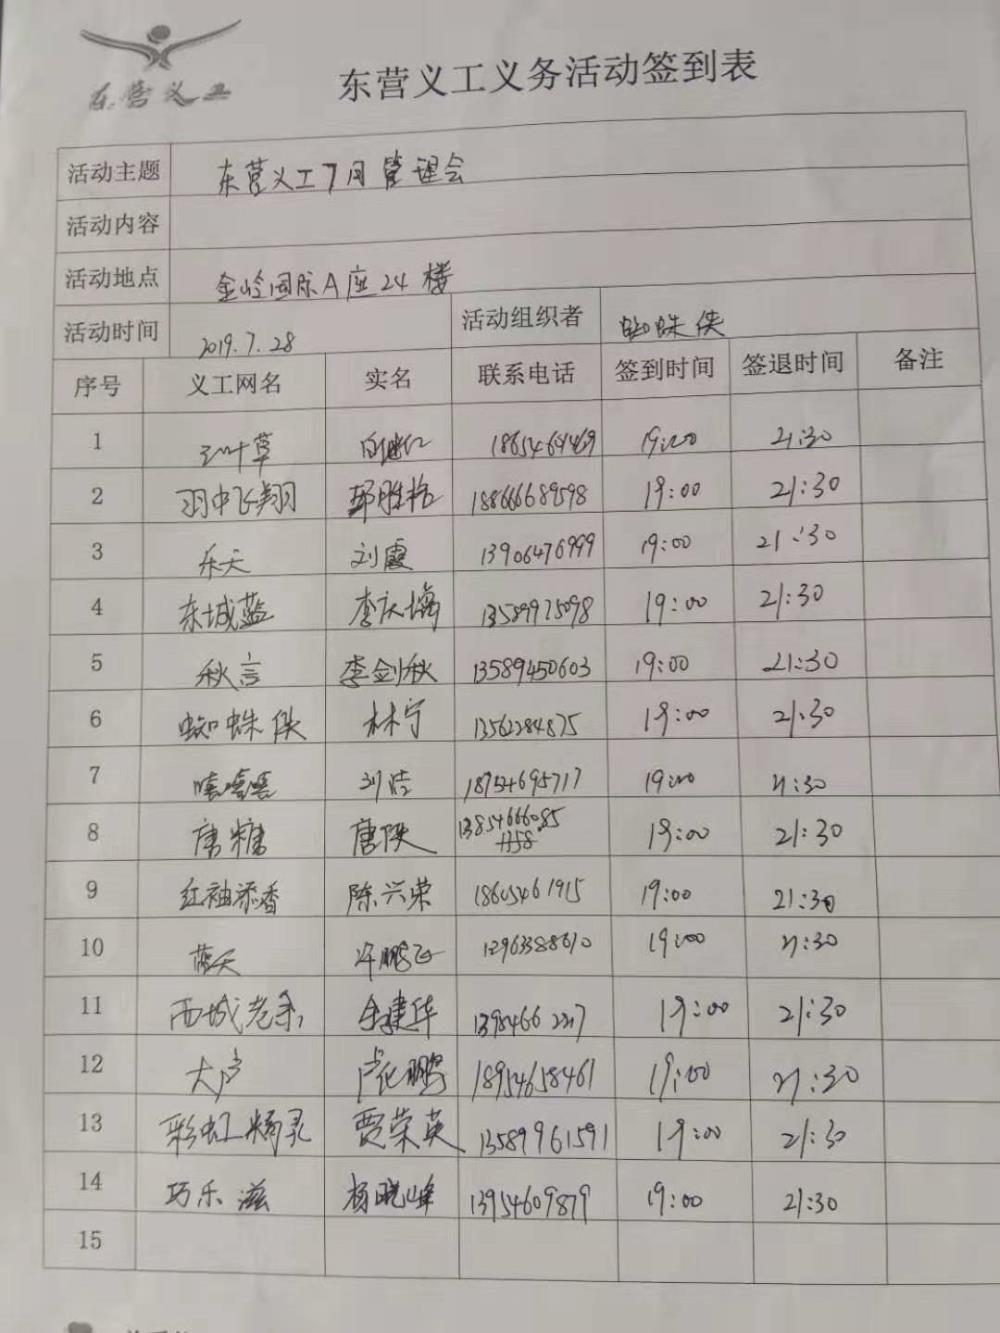 东营义工
东营义工义务活动签到表
活动主题 东营义工7月管理会
活动内容
活动地点 金岭国际A座24楼
活动时间 2019.7.28 活动组织者 蜘蛛侠
序号 义工网名 实名 联系电话 签到时间 签退时间 备注
1 三叶草 19:00 21:30
2 羽中飞翔 18866689598 19:00 21:30
3 乐天 刘霞 13906476999 19:00 21:30
4 东城蓝 13589975098 19:00 21:30
5 秋言 李剑秋 13589450603 19:00 21:30
6 蜘蛛侠 林宁 13562284875 19:00 21:30
7 嘻嘻嘻 18754695717 19:00 21:30
8 唐糖 13854666085 19:00 21:30
9 红袖添香 陈兴荣 18605461915 19:00 21:30
10 蓝天 许鹏飞 19:00 21:30
11 西城老余 余建华 19:00 21:30
12 大卢 卢化鹏 18954658461 19:00 21:30
13 彩虹精灵 贾荣英 13589961591 19:00 21:30
14 巧乐滋 杨晓峰 13954609879 19:00 21:30
15